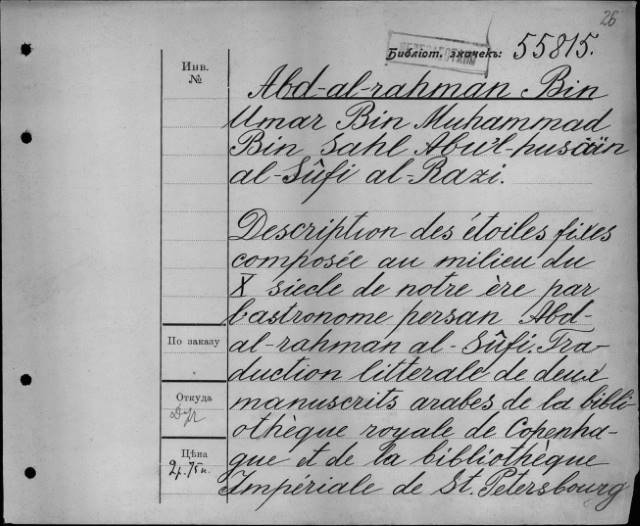 26
Библіот. значекъ: 55815.
Инв.
№
Abd-al-rahman Bin
Umar Bin Muhammad
Bin Sahl Abu'l-husäin
al-Sûfi al-Razi.
Description des étoiles fixes
composée au milieu du
X siecle de notre ère par
l'astronome persan Abd-
al-rahman al-Sûfi. Tra-
duction litterale de deux
manuscrits arabes de la bibli-
othèque royale de Copenha-
gue et de la bibliothèque
Impériale de St. Petersbourg
По заказу
Откуда
Цѣна